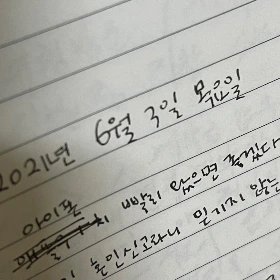 2021년 6월 3일 목요일
아이폰
빨리 왔으면 좋겠다
혼인신고라니 믿기지 않는